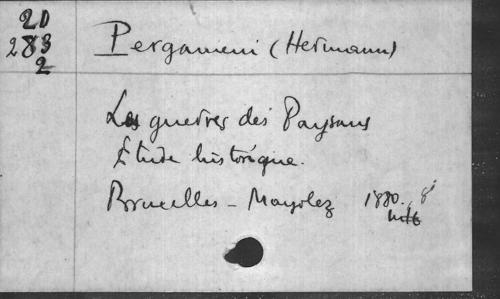 20
283
2
Pergameni (Hermann)
Les guerres des Paysans
Étude historique.
Bruxelles - Mayolez 1880. 8°